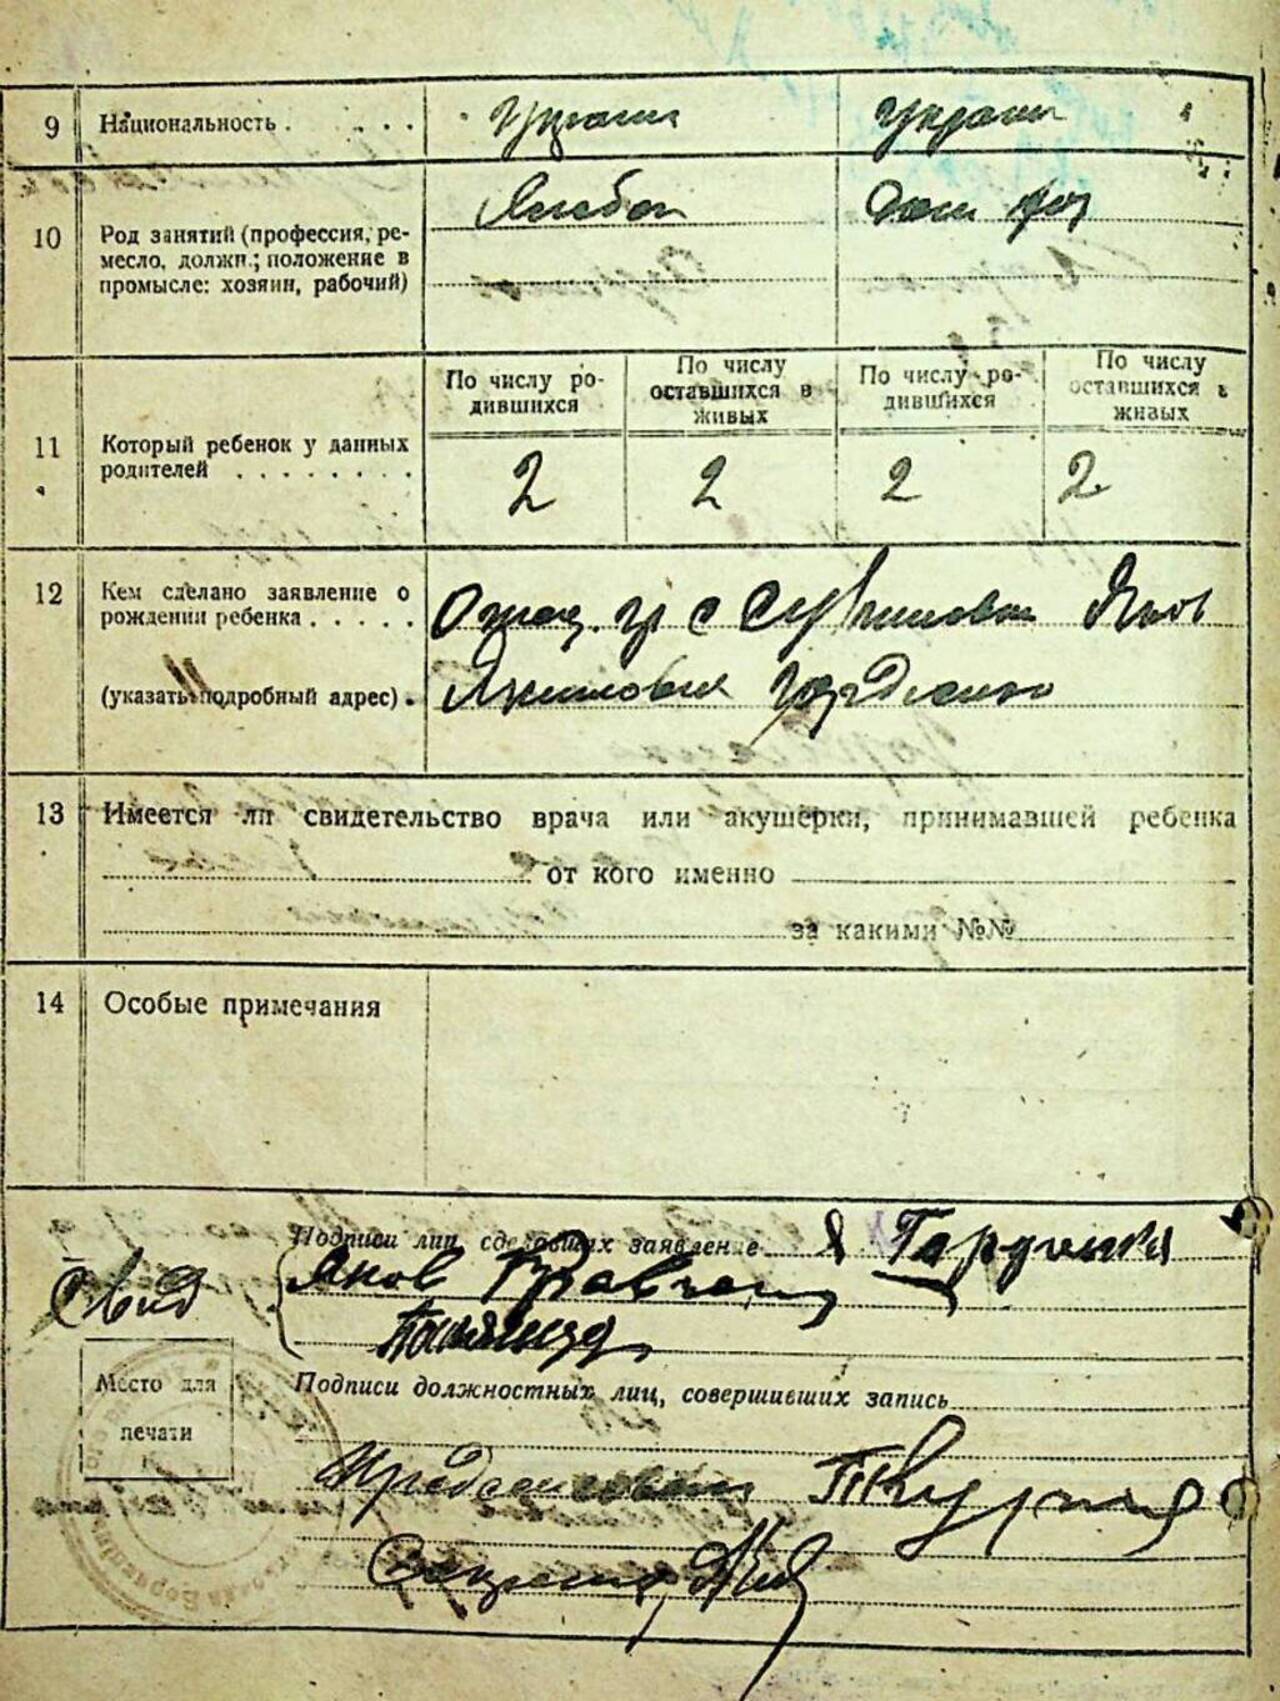 9 Национальность . . . . .
Украин
Украин
10 Род занятий (профессия, ре-
месло, должн.; положение в
промысле: хозяин, рабочий)
Хлебоп
Дом хоз
11 Который ребенок у данных
родителей . . . . . . . .
По числу ро-
дившихся
По числу
оставшихся в
живых
По числу ро-
дившихся
По числу
оставшихся в
живых
2
2
2
2
12 Кем сделано заявление о
рождении ребенка . . . . .
(указать подробный адрес) .
Отец. гр с Яков
Якимович Гордиенко
13 Имеется ли свидетельство врача или акушерки, принимавшей ребенка
от кого именно
за какими №№
14 Особые примечания
Подписи лиц, сделавших заявление Я Гардиенка
Свид
Яков
Место для
печати
Подписи должностных лиц, совершивших запись
Председатель
Секретарь